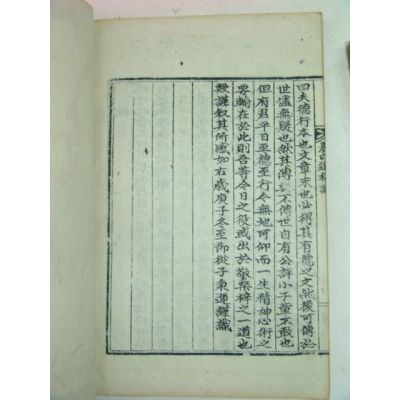 曰夫德行本也文章末也必得其有德之文然後可傳於
世儘無疑也然其傳之不傳世自有公評小子輩不敢也
但府君平日至德至行今無地可仰而一生精神心術之
要輸在於此則吾善今日之役或出於敬桑梓之一道也
謹叙其所感如右歲庚子冬至節從子東運謹識
遺稿